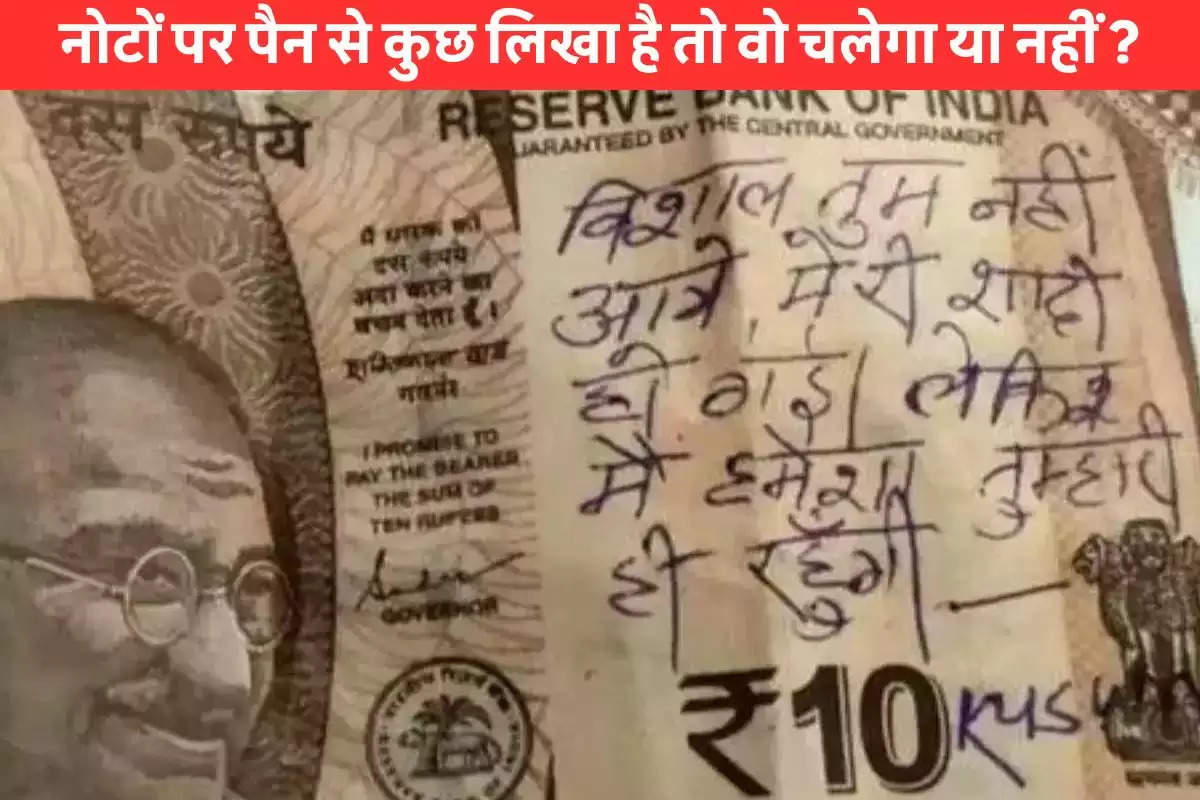 नोटों पर पैन से कुछ लिखा है तो वो चलेगा या नहीं ?
दस रुपये
RESERVE BANK OF INDIA
GUARANTEED BY THE CENTRAL GOVERNMENT
मैं धारक को
दस रुपये
अदा करने का
वचन देता हूँ।
गवर्नर
I PROMISE TO
PAY THE BEARER
THE SUM OF
TEN RUPEES
GOVERNOR
विशाल तुम नहीं
आये, मेरी शादी
हो गई। लेकिन
मैं हमेशा तुम्हारी
ही रहूँगी —
₹10